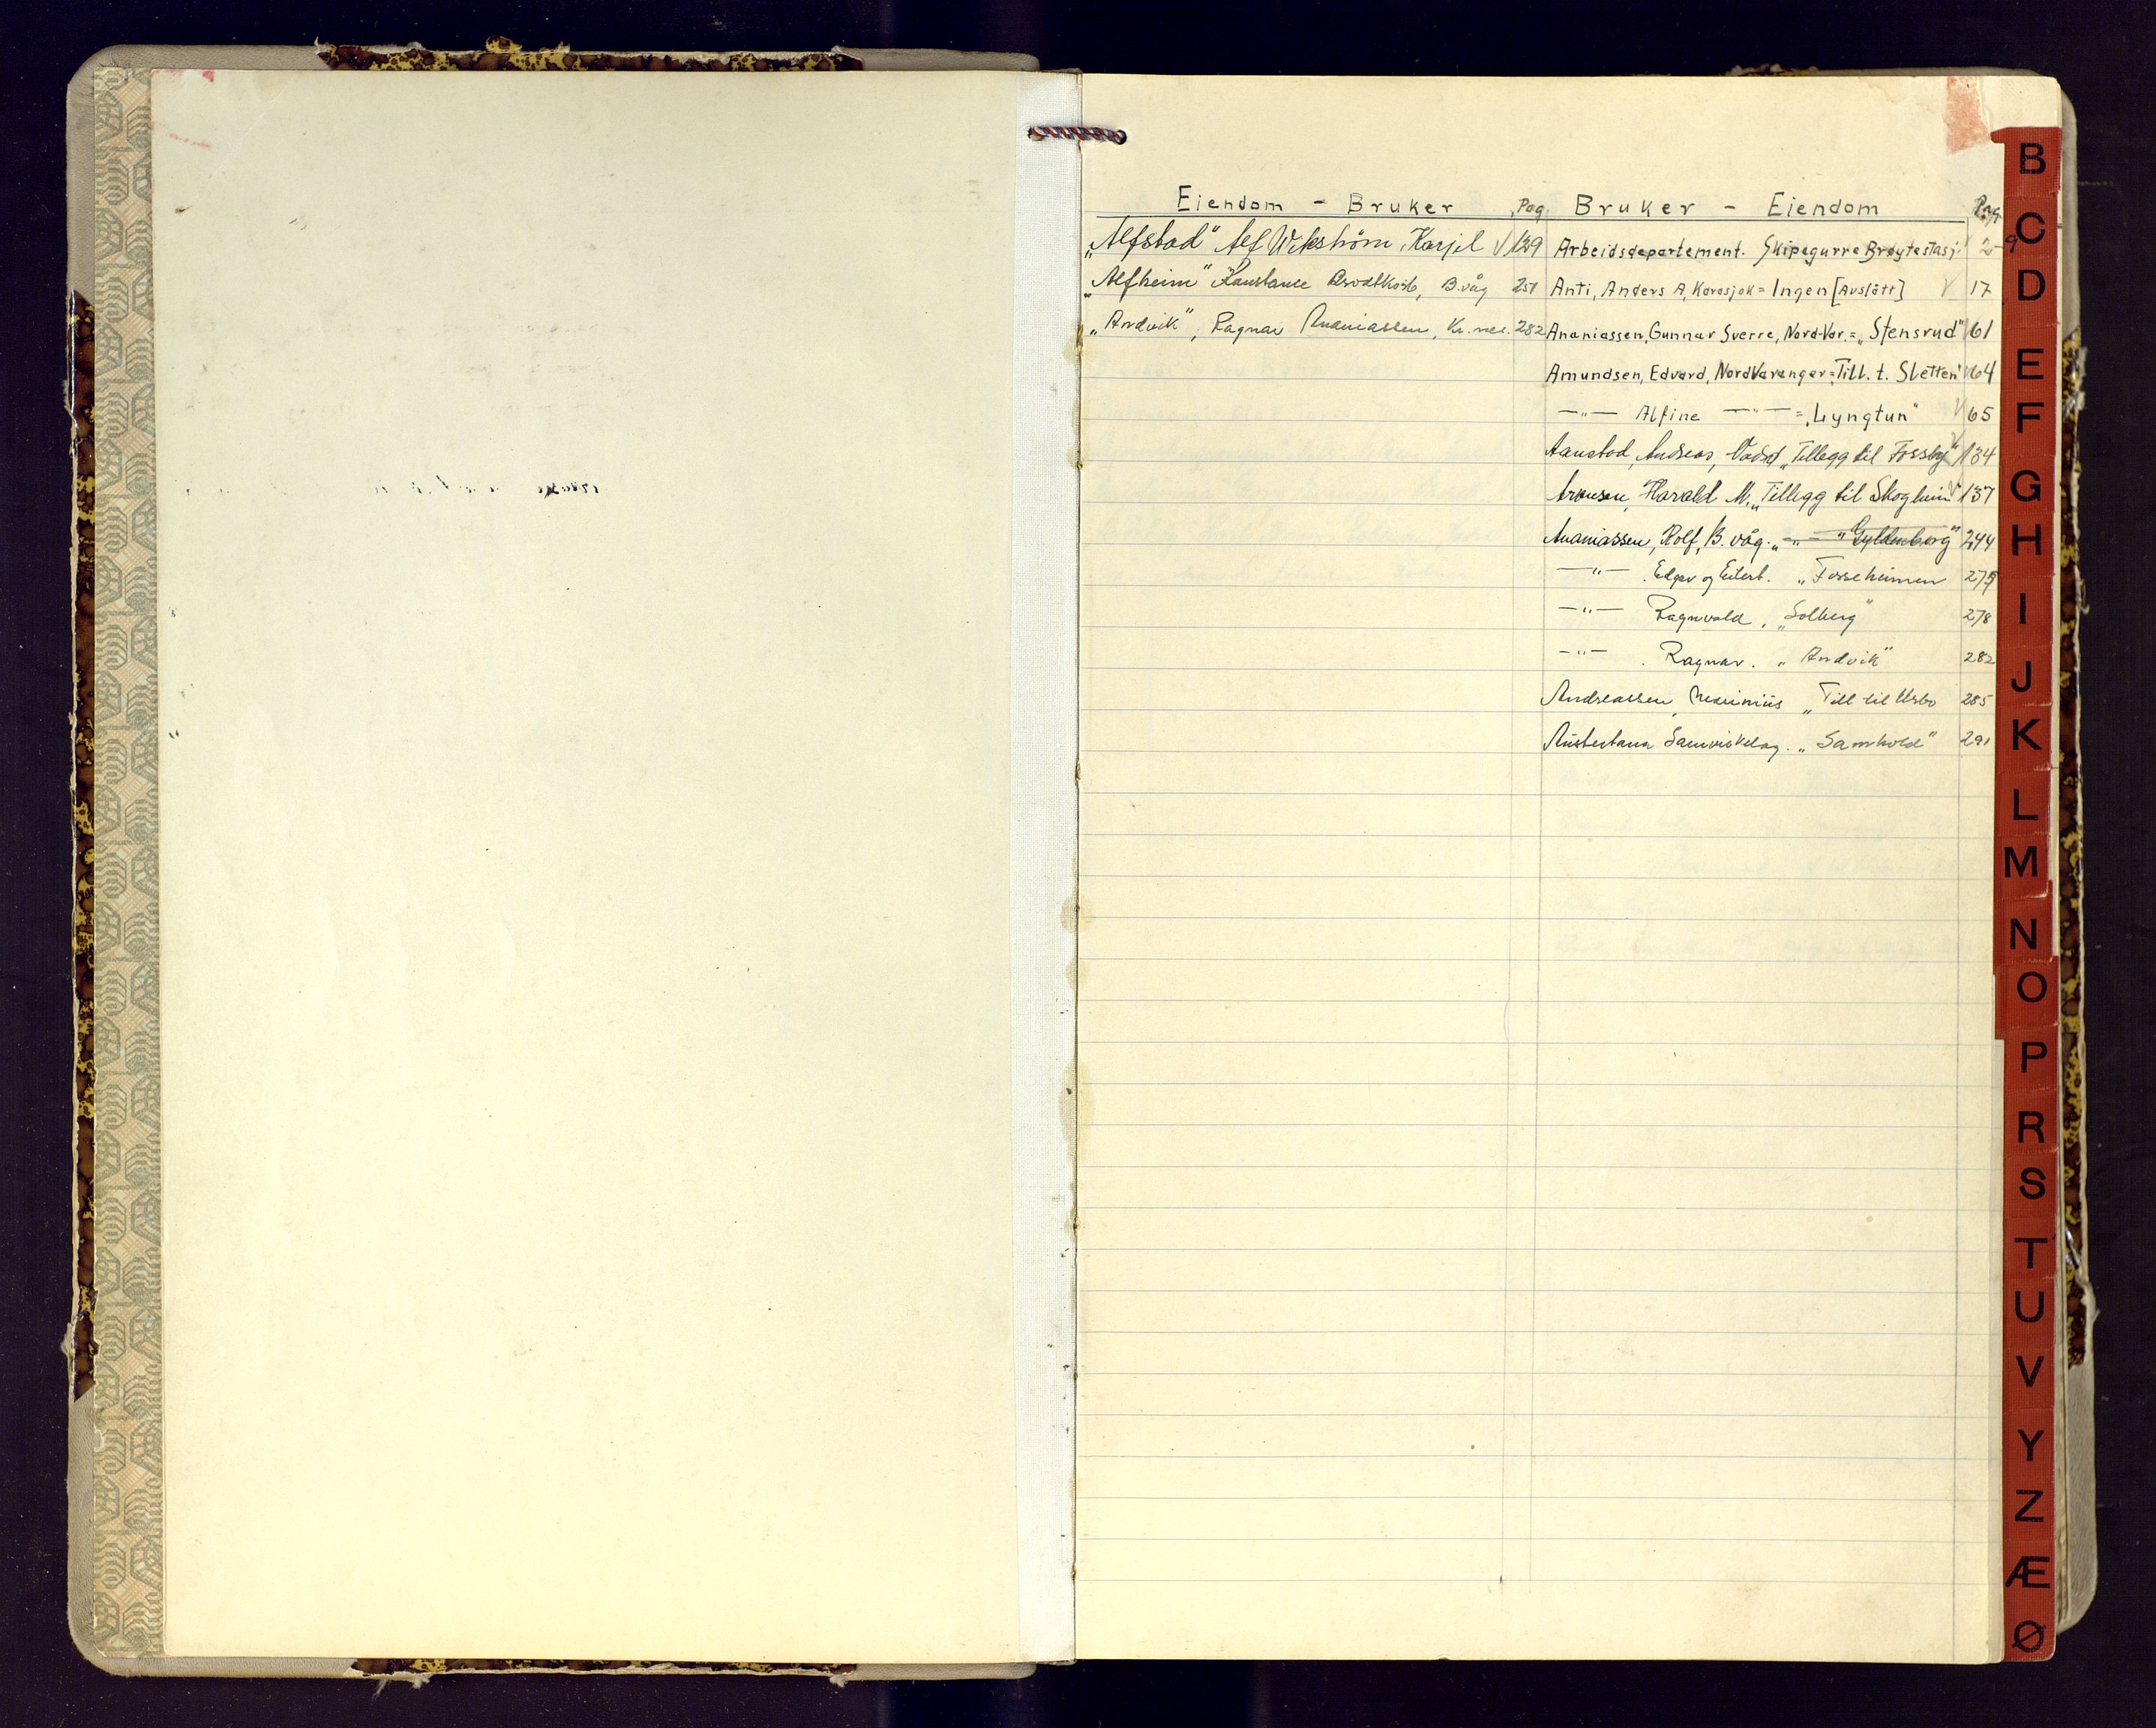 Eiendom - Bruker Pag.
"Alfstad" Alf Wikstrøm, Karjel V 129
"Alfheim" Konstanse Brodtkorb, B.våg 251
"Andvik", Ragnar Ananiassen, Kr.nes. 282
Bruker - Eiendom Pag.
Arbeidsdepartement. Skipagurre Brøytestasj. 2-9
Anti, Anders A, Karasjok = Ingen [Avslått] V 17
Ananiassen, Gunnar Sverre, Nord-Var. = "Stensrud" 61
Amundsen, Edvard, NordVaranger = "Till. t. Sletten" V 64
—"— Alfine —"— = "Lyngtun" V 65
Aanstad, Andreas, Vadsø "Tillegg til Fossby" V 134
Harald M. "Tillegg til Skogheim" V 137
Ananiassen, Rolf, B. våg. " —"— "Gyldenborg" 244
—"— . Edgar og Eilert. "Fosseheimen 275
—"— Ragnvald, "Solberg" 278
—"— . Ragnar. "Andvik" 282
Andreassen, "Till til 285
Austertana Samvirkelag. "Samhold" 291
B
C
D
E
F
G
H
I
J
K
L
M
N
O
P
R
S
T
U
V
Y
Z
Æ
Ø